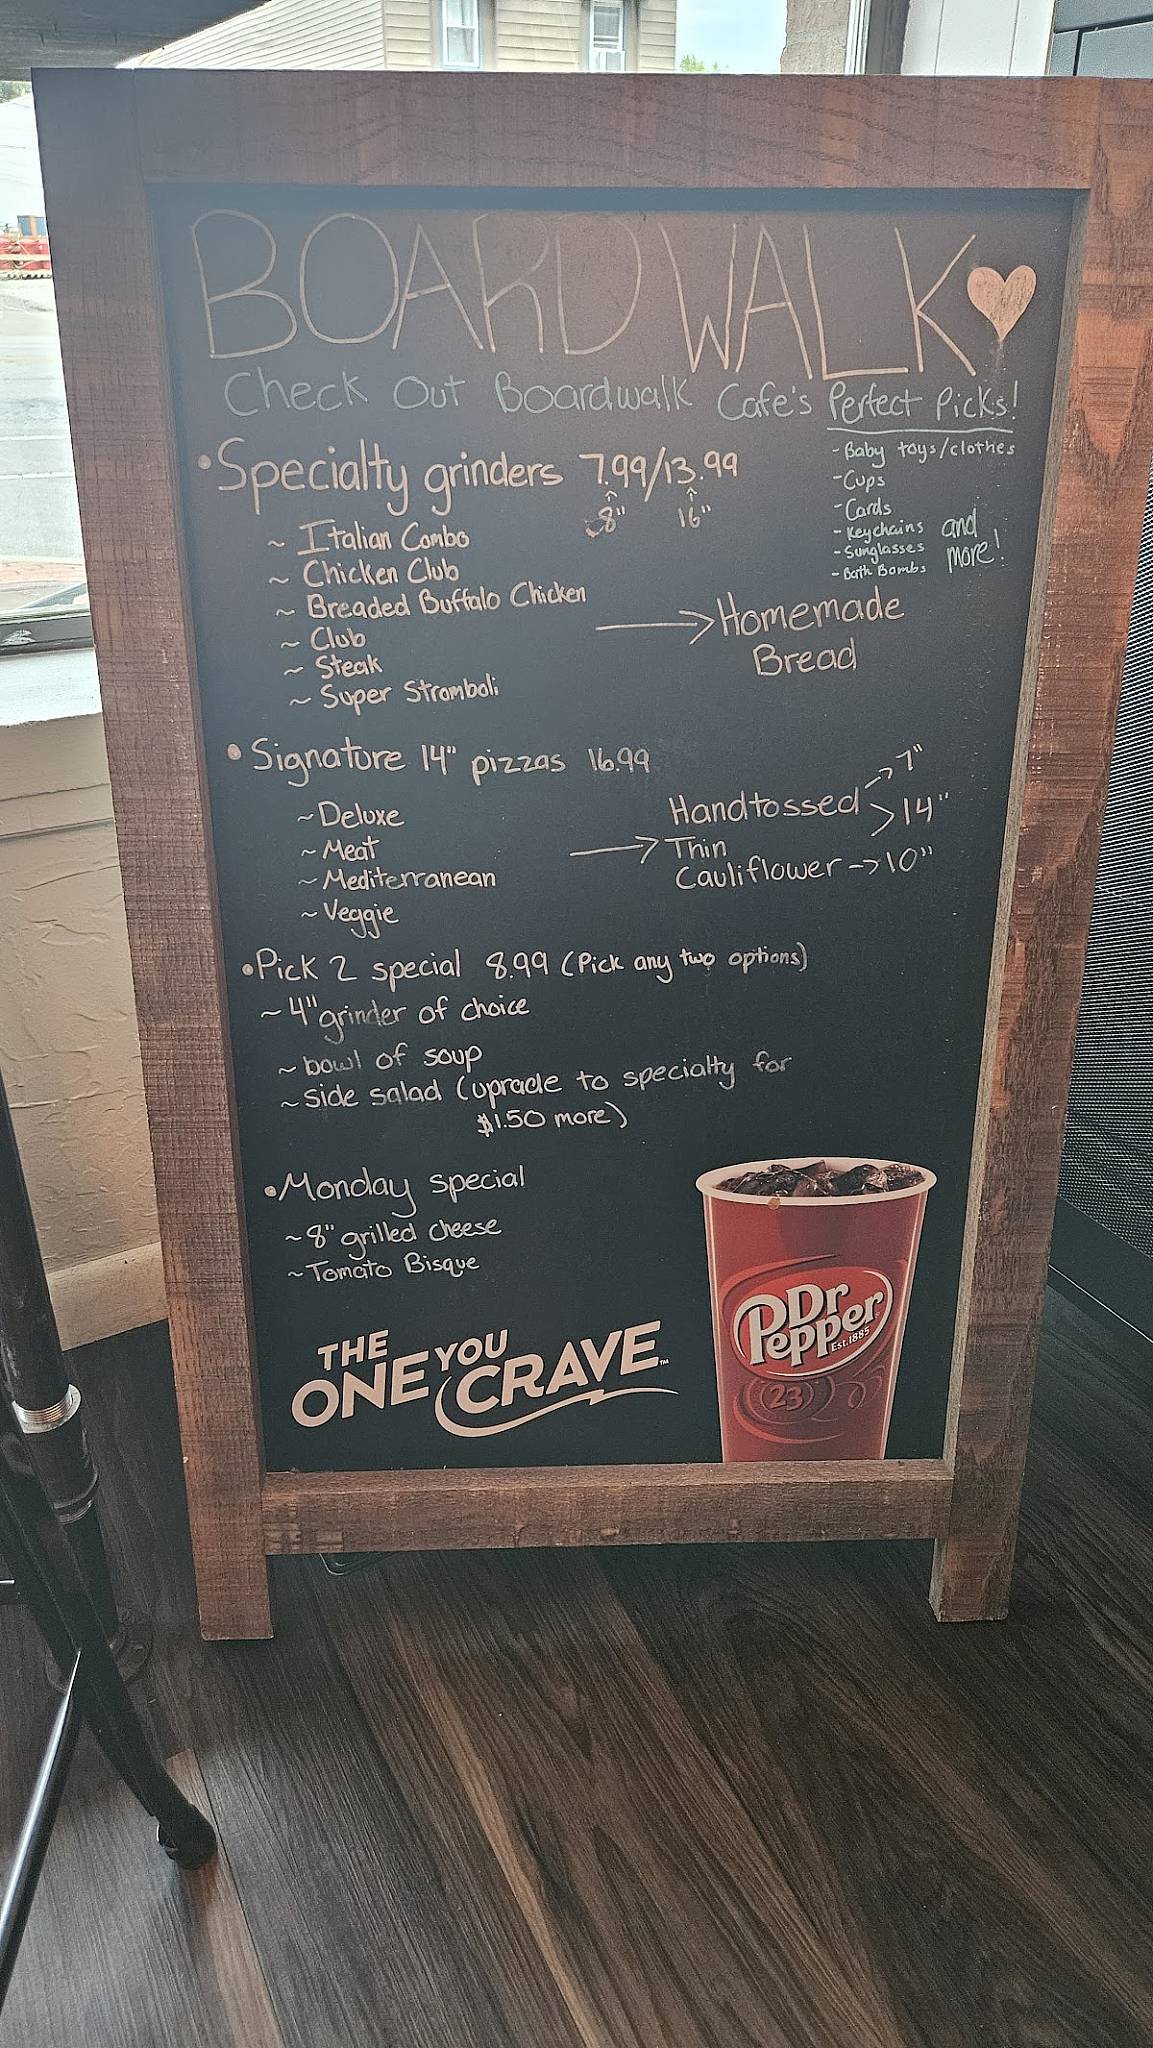 BOARDWALK
Check Out Boardwalk Cafe's Perfect Picks!
- Baby toys/clothes
- Cups
- Cards
- Keychains
- Sunglasses
- Bath Bombs
and
more!
• Specialty grinders 7.99/13.99
8" 16"
~ Italian Combo
~ Chicken Club
~ Breaded Buffalo Chicken
~ Club
~ Steak
~ Super Stromboli
→ Homemade
Bread
• Signature 14" pizzas 16.99
~ Deluxe
~ Meat
~ Mediterranean
~ Veggie
Handtossed -> 7"
> 14"
→ Thin
Cauliflower -> 10"
• Pick 2 special 8.99 (Pick any two options)
~ 4" grinder of choice
~ bowl of soup
~ side salad (upracle to specialty for
$1.50 more)
• Monday special
~ 8" grilled cheese
~ Tomato Bisque
THE
ONE YOU
CRAVE™
Dr
Pepper
Est.1885
23